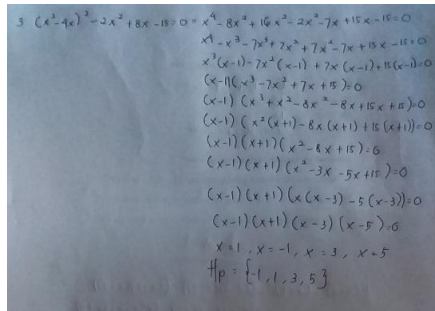 3 (x²-4x)²-2x²+8x-15=0 = x⁴-8x³+16x²-2x²-7x+15x-15=0
x⁴-x³-7x³+7x²+7x²-7x+15x-15=0
x³(x-1)-7x²(x-1)+7x(x-1)+15(x-1)=0
(x-1)(x³-7x²+7x+15)=0
(x-1)(x³+x²-8x²-8x+15x+15)=0
(x-1)(x²(x+1)-8x(x+1)+15(x+1))=0
(x-1)(x+1)(x²-8x+15)=0
(x-1)(x+1)(x²-3x-5x+15)=0
(x-1)(x+1)(x(x-3)-5(x-3))=0
(x-1)(x+1)(x-3)(x-5)=0
x=1, x=-1, x=3, x=5
Hp = {-1,1,3,5}